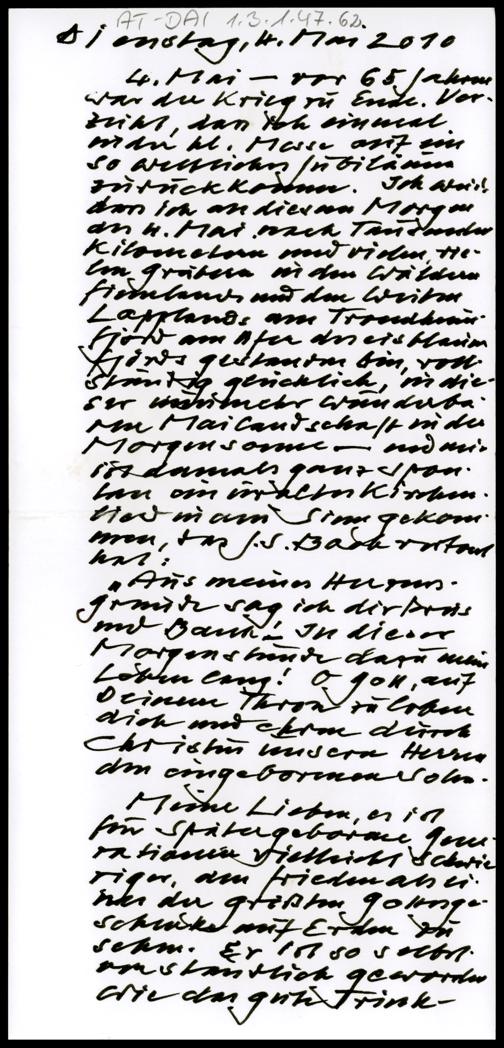 AT-DAI 1.3.1.47.62.
Dienstag, 4. Mai 2010
4. Mai — vor 65 Jahren
war der Krieg zu Ende. Ver-
zeiht, dass ich einmal
in der hl. Messe auf ein
so weltliches Jubiläum
zurückkomme. Ich weiß,
dass ich an diesem Morgen
des 4. Mai nach Tausenden
Kilometern und vielen, vie-
len Gräbern in den Wäldern
Finnlands und den Weiten
Lapplands am Trondheim-
fjord am Ufer des eisblauen
Fjords gestanden bin, voll-
ständig glücklich, in die-
ser nunmehr wunderba-
ren Mailandschaft in der
Morgensonne — und mir
ist damals ganz spon-
tan ein uraltes Kirchen-
lied in den Sinn gekom-
men, das J.S. Bach vertont
hat:
„Aus meines Herzens-
grunde sag ich dir Preis
und Dank! In dieser
Morgenstunde dazu mein
Leben lang! O Gott, auf
Deinem Thron zu loben
dich und ehren durch
Christus unseren Herrn
den eingeborenen Sohn.
Meine Lieben, es ist
für spätergeborene Gene-
rationen vielleicht schwie
riger, den Frieden als ei-
nes der größten Gottesge-
schenke auf Erden zu
sehen. Er ist so selbst-
verständlich geworden
wie das gute Trink-